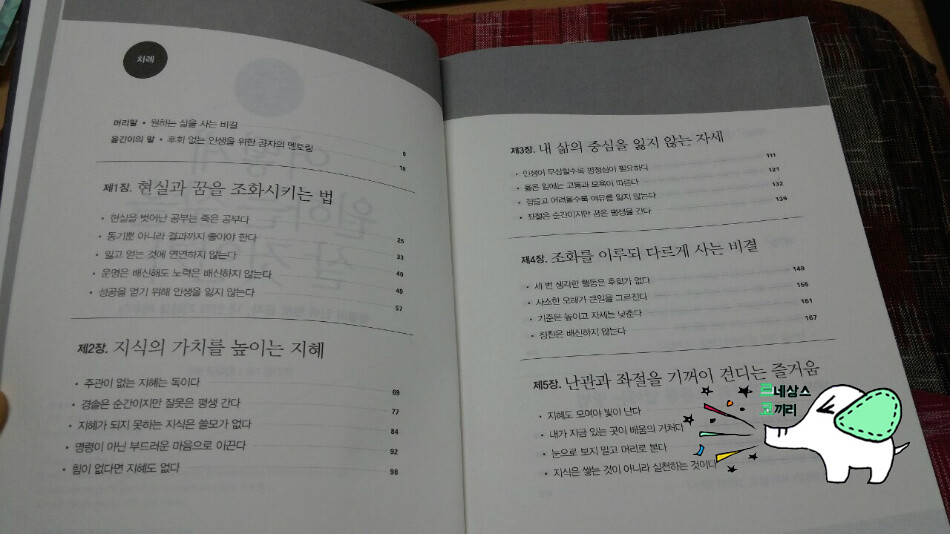 차례
머리말 • 원하는 삶을 사는 비결 6
옮긴이의 말 • 후회 없는 인생을 위한 공자의 멘토링 18
제1장. 현실과 꿈을 조화시키는 법
• 현실을 벗어난 공부는 죽은 공부다 25
• 동기뿐 아니라 결과까지 좋아야 한다 33
• 잃고 얻는 것에 연연하지 않는다 40
• 운명은 배신해도 노력은 배신하지 않는다 49
• 성공을 얻기 위해 인생을 잃지 않는다 57
제2장. 지식의 가치를 높이는 지혜
• 주관이 없는 지혜는 독이다 69
• 경솔은 순간이지만 잘못은 평생 간다 77
• 지혜가 되지 못하는 지식은 쓸모가 없다 84
• 명령이 아닌 부드러운 마음으로 이끈다 92
• 힘이 없다면 지혜도 없다 98
제3장. 내 삶의 중심을 잃지 않는 자세
• 인생이 무상할수록 평정심이 필요하다 111
• 옳은 일에는 고통과 모욕이 따른다 121
• 힘들고 어려울수록 여유를 잃지 않는다 132
• 좌절은 순간이지만 꿈은 평생을 간다 139
제4장. 조화를 이루되 다르게 사는 비결
• 세 번 생각한 행동은 후회가 없다 149
• 사소한 오해가 큰일을 그르친다 155
• 기준은 높이고 자세는 낮춘다 161
• 칭찬은 배신하지 않는다 167
제5장. 난관과 좌절을 기꺼이 견디는 즐거움
• 지혜도 모여야 빛이 난다
• 내가 지금 있는 곳이 배움의 거처다
• 눈으로 보지 말고 머리로 본다
• 지식은 쌓는 것이 아니라 실천하는 것이다
르네상스
코끼리